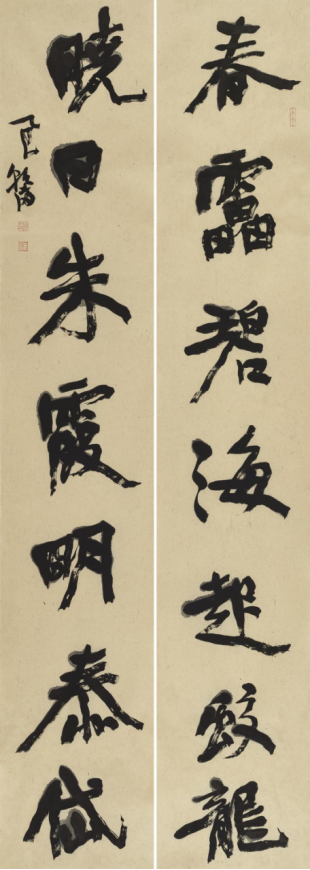 春靁碧海起蛟龍
曉日朱霞明泰岱